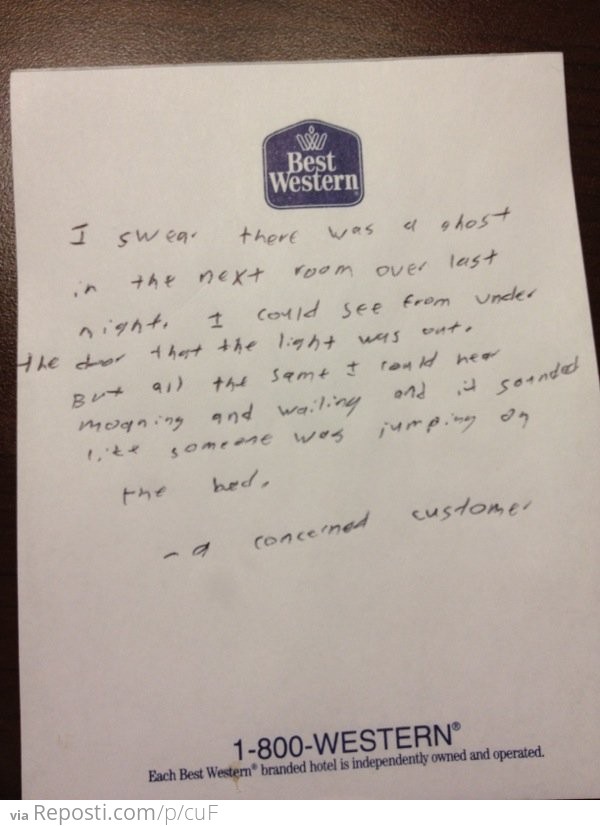 Best
Western
I swear there was a ghost
in the next room over last
night. I could see from under
the door that the light was out.
But all the same I could hear
moaning and wailing and it sounded
like someone was jumping on
the bed.
- a concerned customer
1-800-WESTERN®
Each Best Western® branded hotel is independently owned and operated.
via Reposti.com/p/cuF